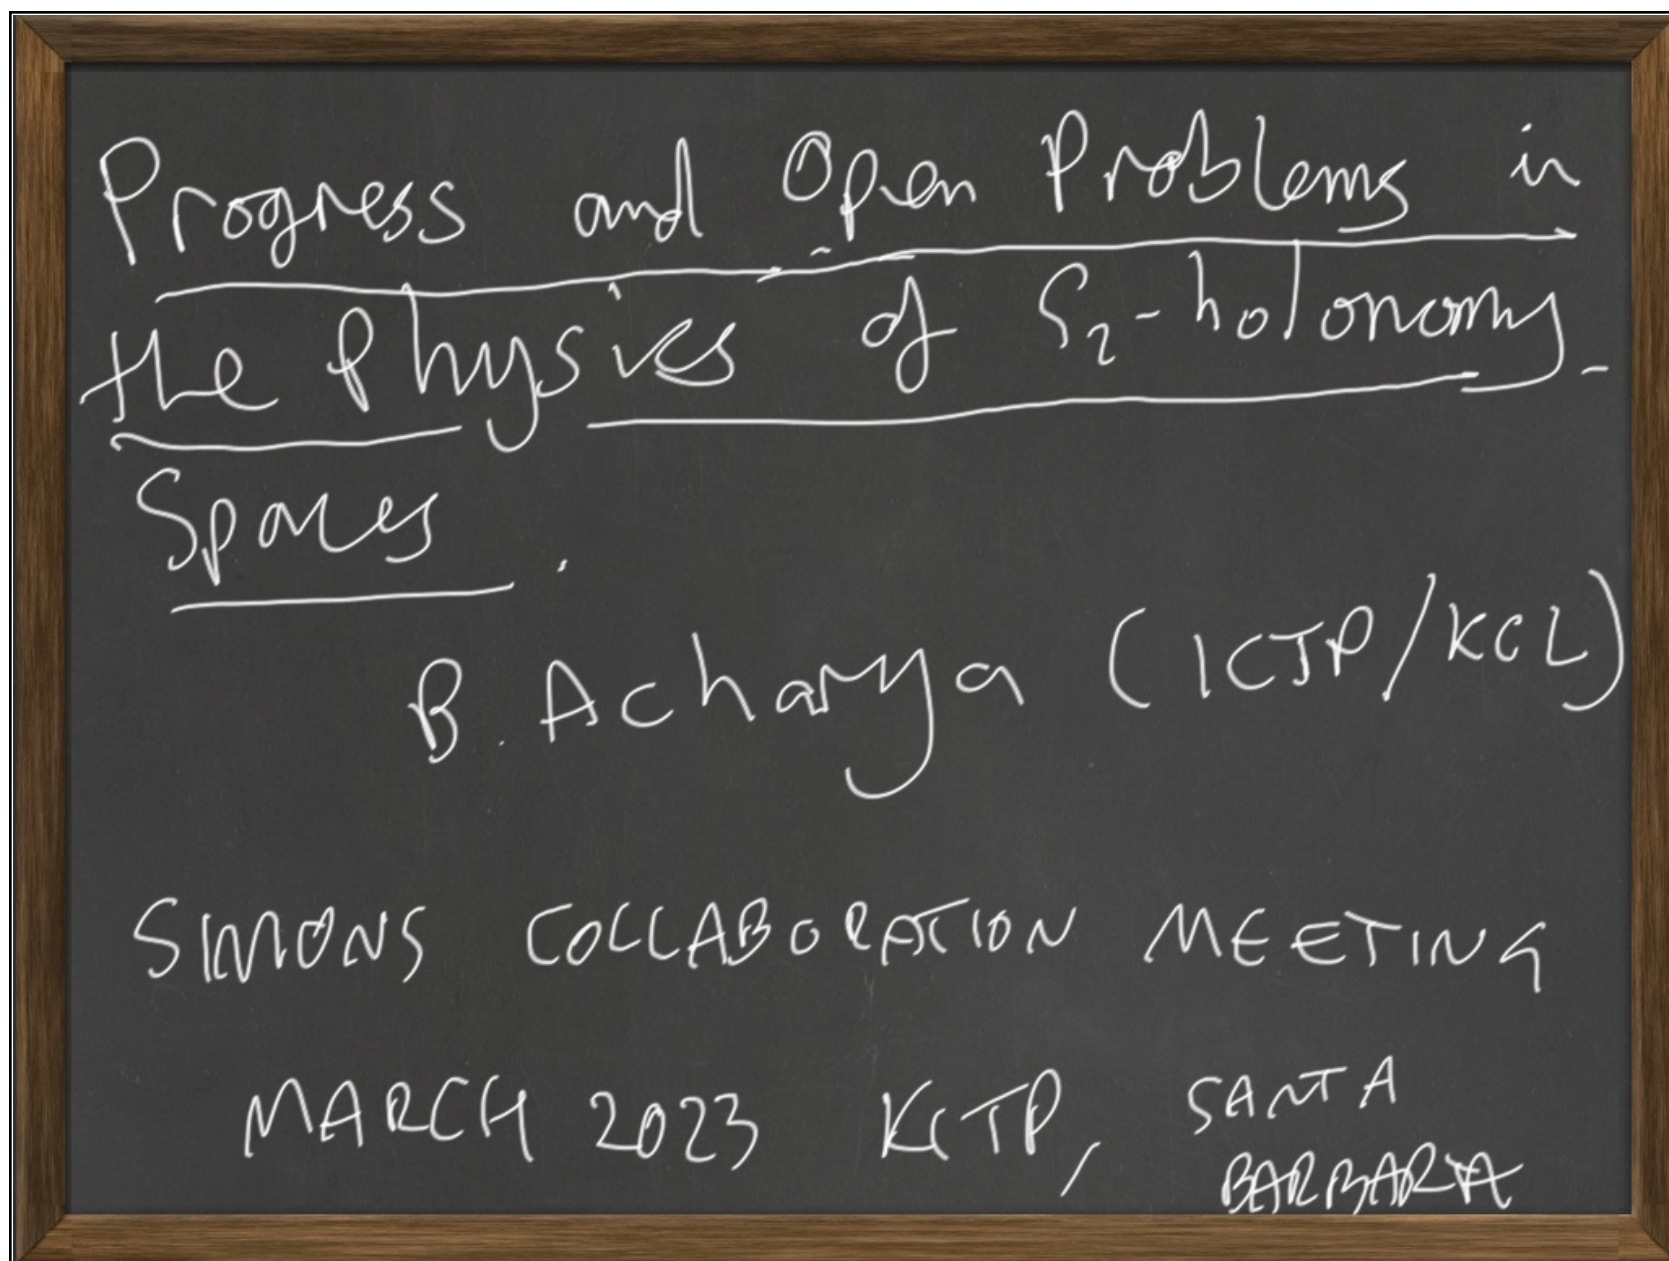 Progress and Open Problems in
the Physics of G₂-holonomy
Spaces.
B. Acharya (ICTP/KCL)
SIMONS COLLABORATION MEETING
MARCH 2023 KITP, SANTA
BARBARA